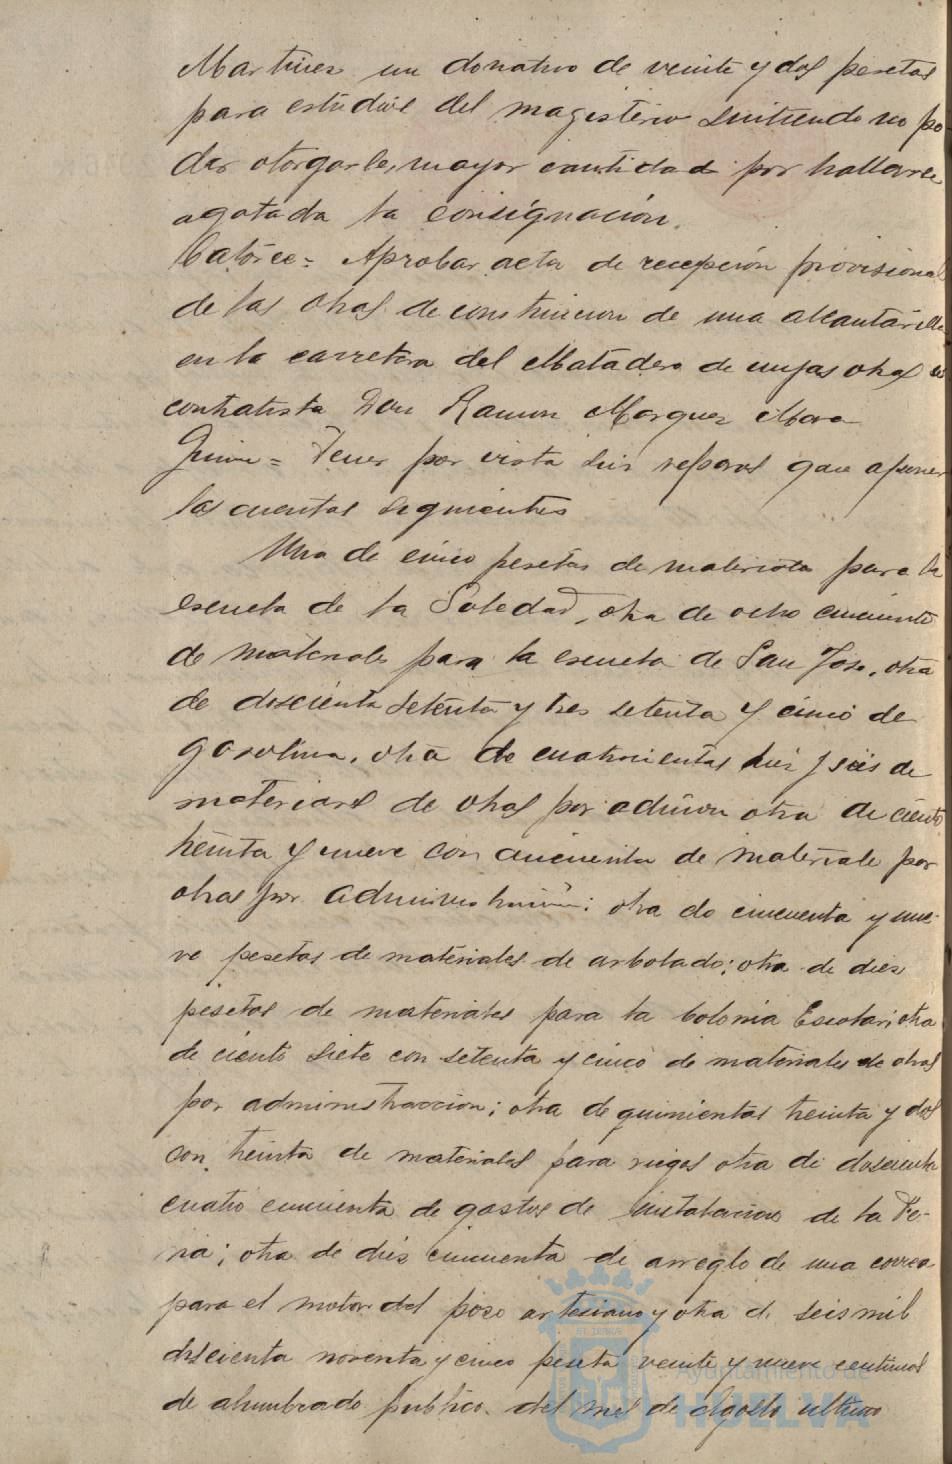 Martinez un donativo de veinte y dos pesetas
para estudios del magisterio sintiendo no po
der otorgarle, mayor cantidad por hallarse
agotada la consignación.
Catorce = Aprobar acta de recepción provisional
de las obras de construccion de una alcantarilla
en la carretera del Matadero de cuyas obras es
contratista Don Ramon Marquez Mora
Quince = Tener por vista sin reparos que oponer
las cuentas siguientes
Una de cinco pesetas de material para la
escuela de la Soledad, otra de ocho cincuenta
de materiales para la escuela de San Jose, otra
de doscienta setenta y tres setenta y cinco de
gasolina, otra de cuatrocientas diez y seis de
materiales de obras por admon otra de ciento
treinta y nueve con cincuenta de materiale por
obras por administración; otra de cincuenta y nue-
ve pesetas de materiales de arbolado; otra de diez
pesetas de materiales para la Colonia Escolar; otra
de ciento siete con setenta y cinco de materiales de obras
por administraccion; otra de quinientas treinta y dos
con treinta de materiales para riegos otra de doscienta
cuatro cincuenta de gastos de instalaciones de la Fe-
ria; otra de diez cincuenta de arreglo de una correa
para el motor del pozo artesiano y otra de seis mil
dscienta noventa y cinco peseta veinte y nueve centimos
de alumbrado publico del mes de Agosto ultimo
Ayuntamiento de
HUELVA